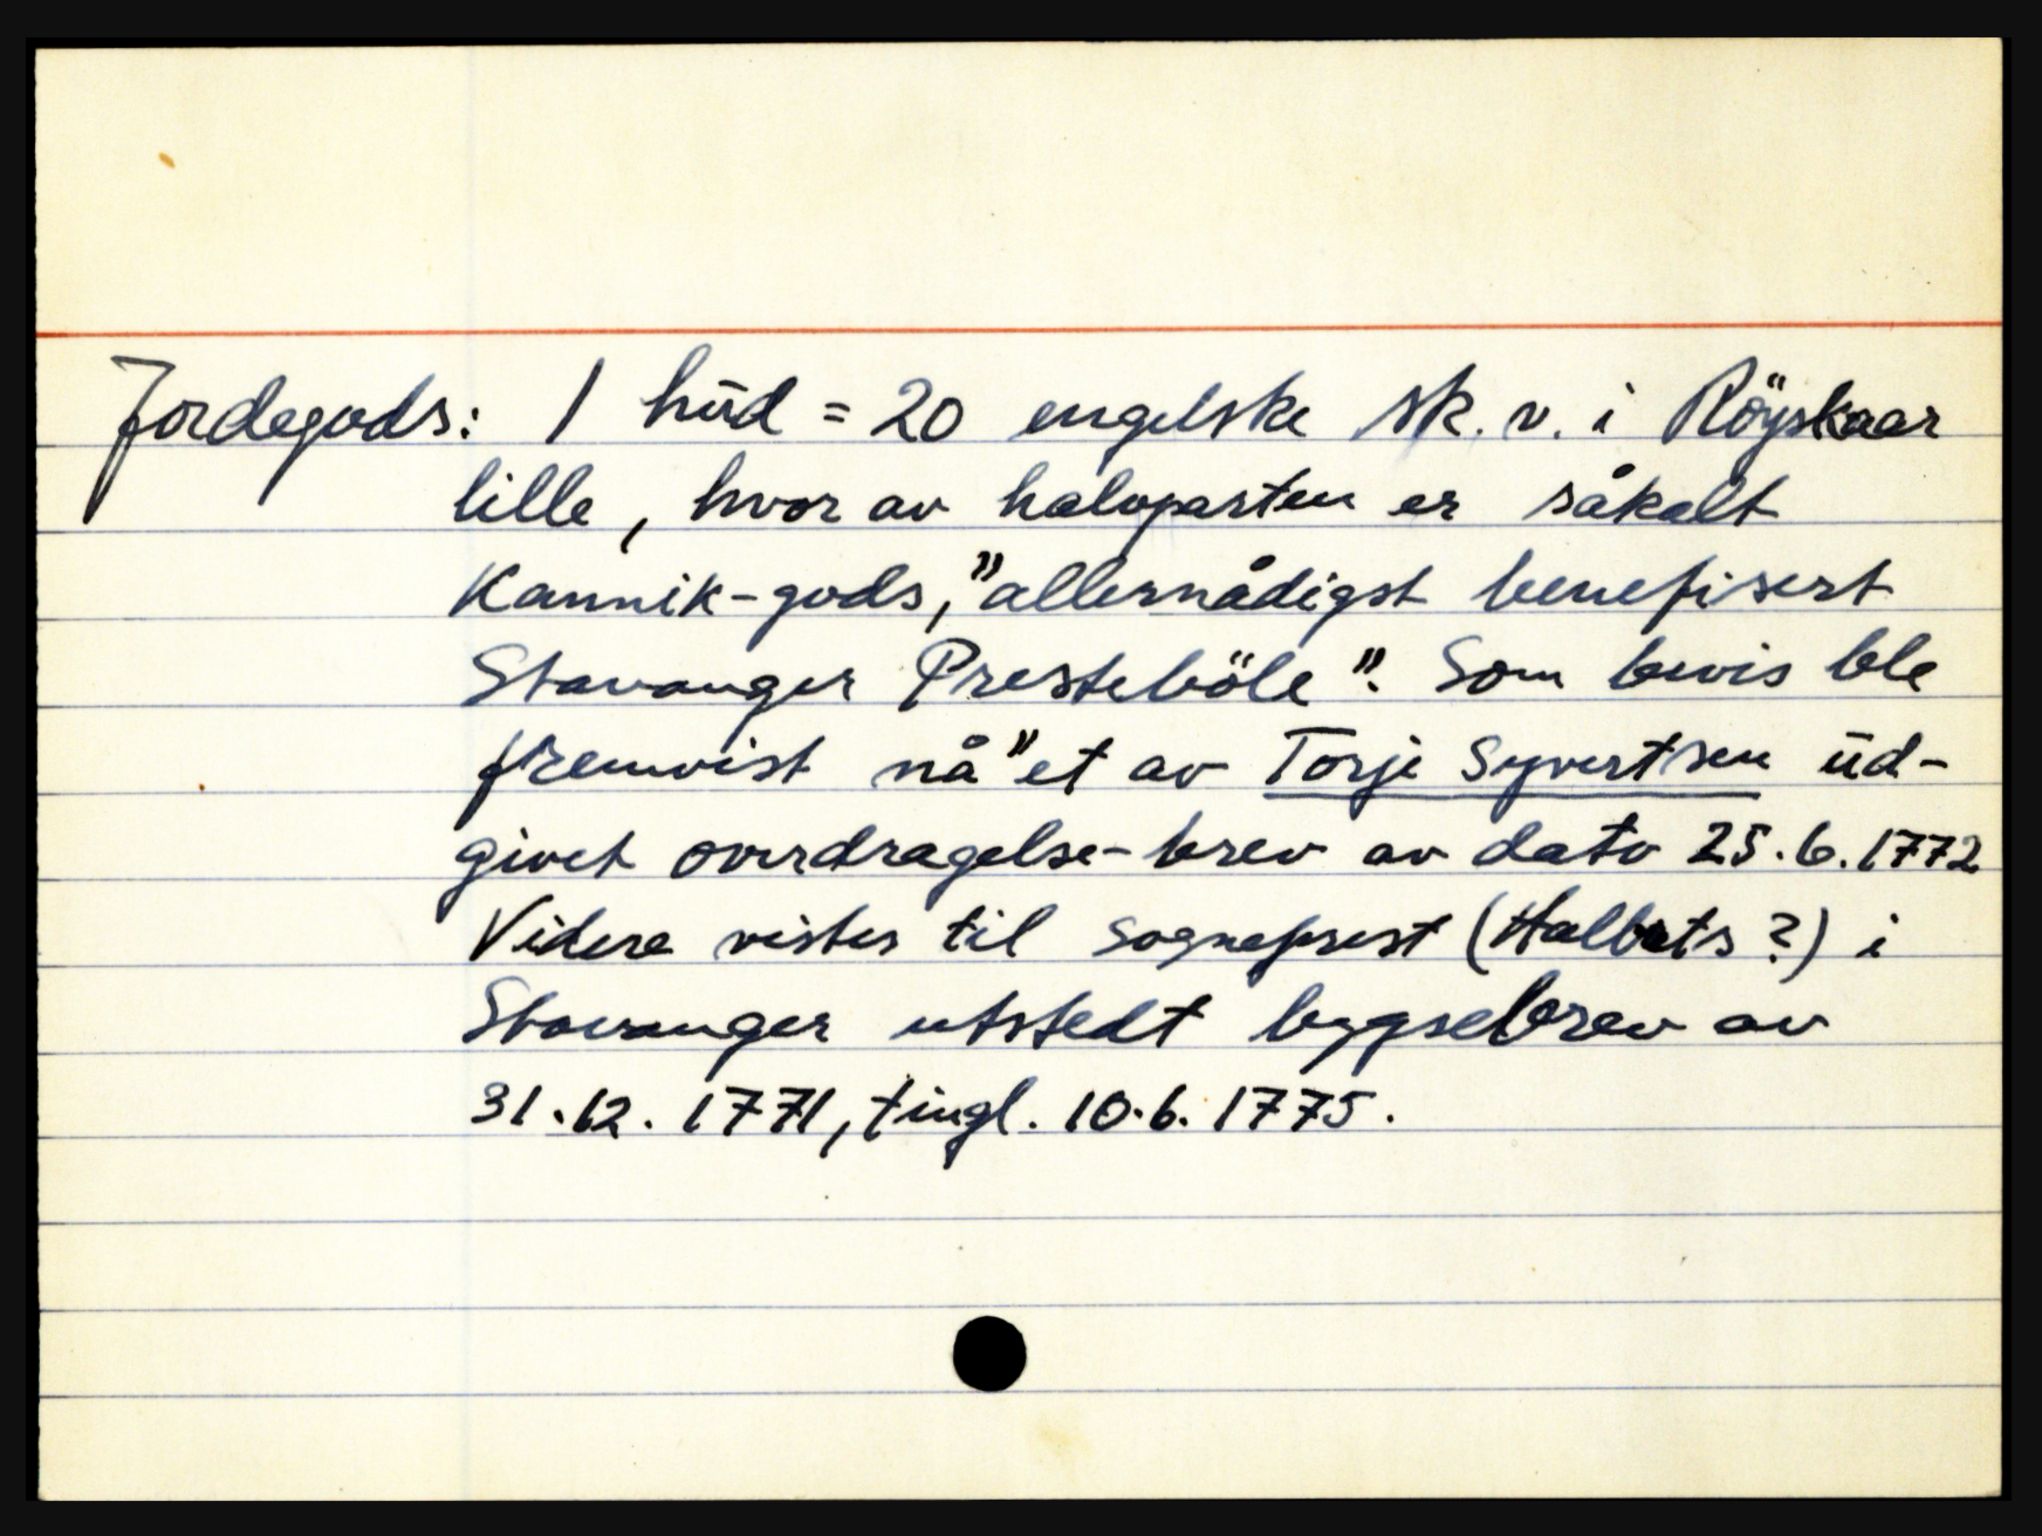 Jordegods: 1 hūd = 20 engelske sk. v. i Röyskaar
lille, hvor av halvparten er såkalt
Kannik-gods, "allernådigst benefisert
Stavanger Presteböle". Som bevis ble
fremvist nå "et av Torje Syvertsen ūd-
givet overdragelse-brev av dato 25.6.1772
Videre vistes til sogneprest (Halbets ?) i
Stavanger utstedt bygselbrev av
31.12.1771, tingl. 10.6.1775.